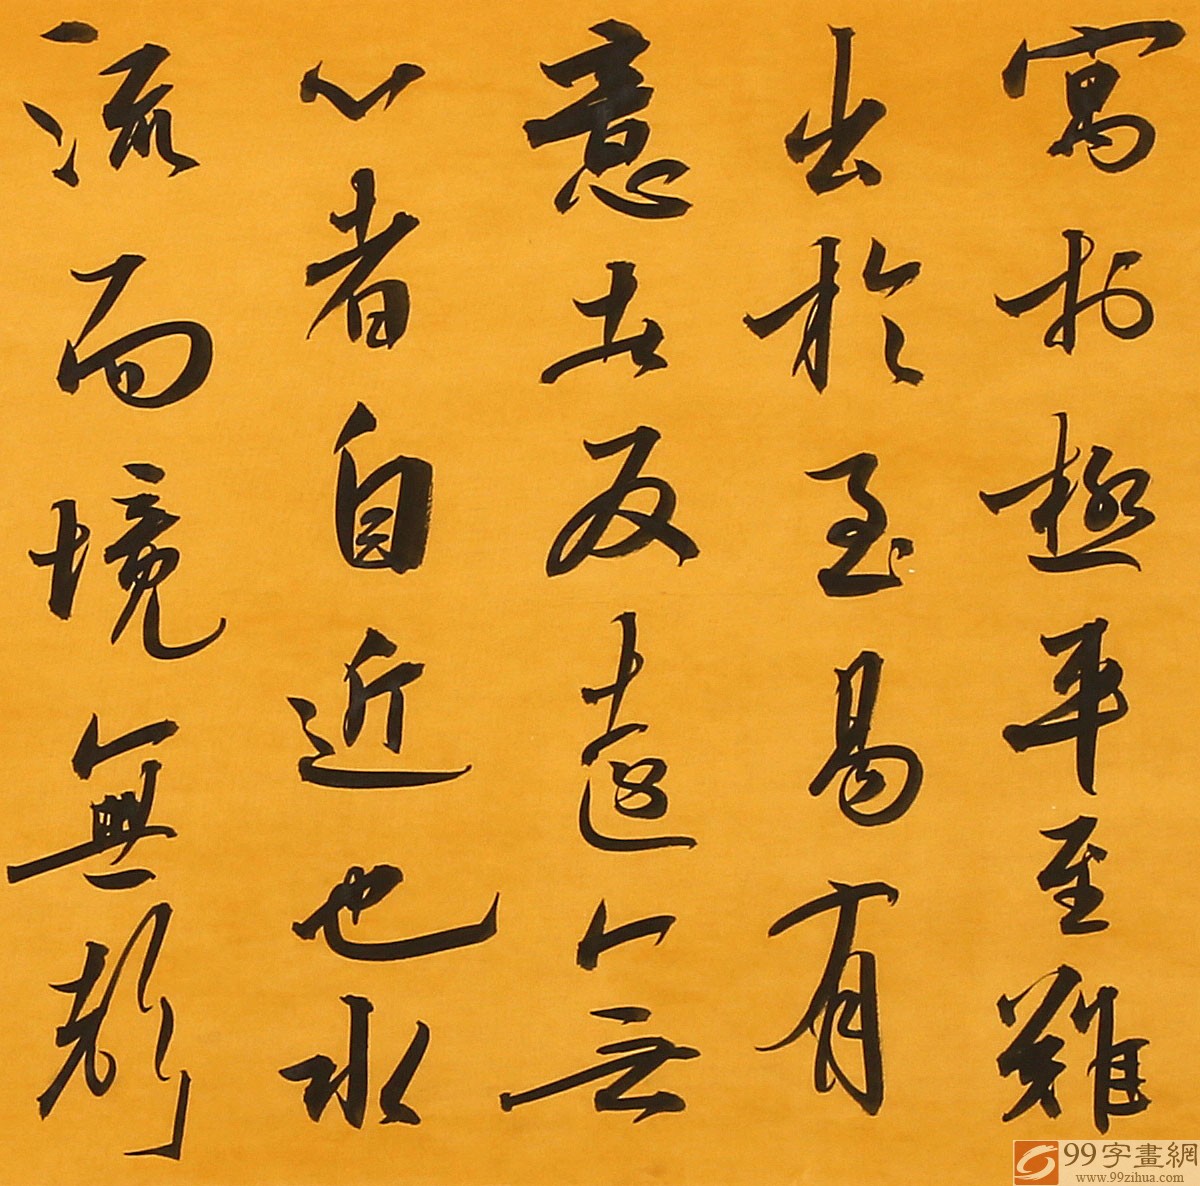 寓於極平至難
出於至易有
意者反遠無
心者自近也水
流而境無聲
99字畫網
www.99zihua.com